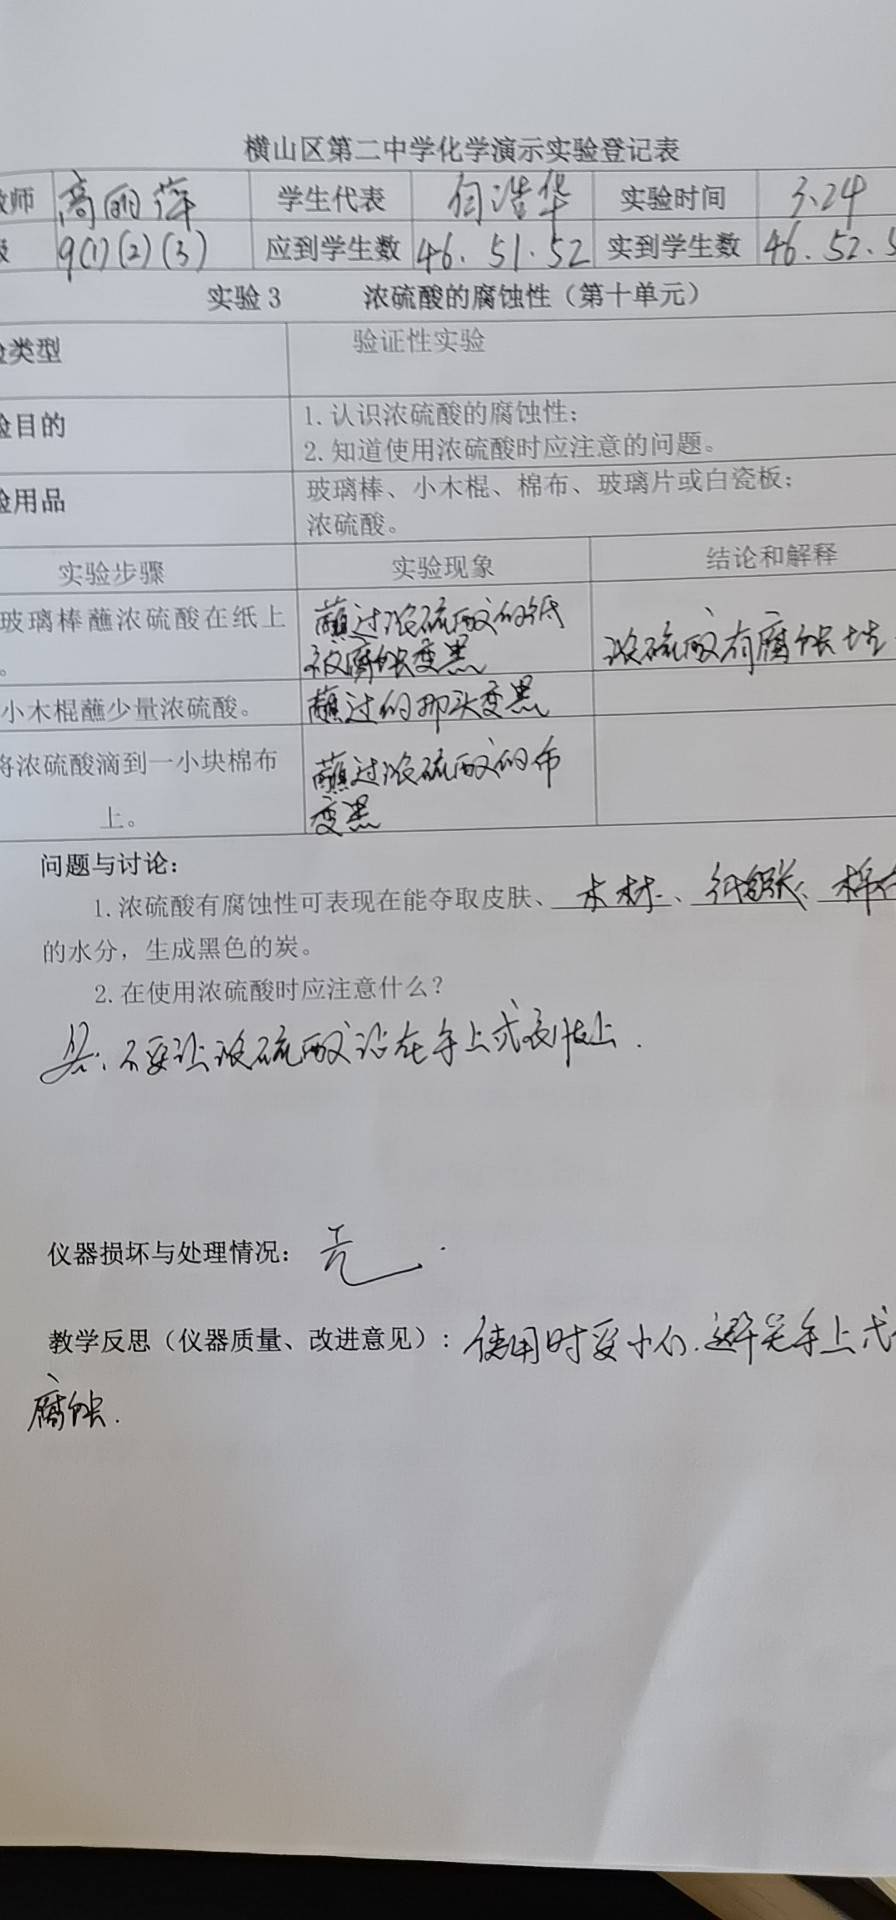 横山区第二中学化学演示实验登记表
师 高丽萍 学生代表 何浩华 实验时间 3.24
9(1)(2)(3) 应到学生数 46.51.52 实到学生数 46.52.5
实验3 浓硫酸的腐蚀性（第十单元）
类型 验证性实验
1.认识浓硫酸的腐蚀性；
验目的
2.知道使用浓硫酸时应注意的问题。
玻璃棒、小木棍、棉布、玻璃片或白瓷板；
验用品
浓硫酸。
实验步骤 实验现象 结论和解释
玻璃棒蘸浓硫酸在纸上 蘸过浓硫酸的纸
。 被腐蚀变黑 浓硫酸有腐蚀性
小木棍蘸少量浓硫酸。 蘸过的那头变黑
将浓硫酸滴到一小块棉布 蘸过浓硫酸的布
上。 变黑
问题与讨论：
1.浓硫酸有腐蚀性可表现在能夺取皮肤、木材、纸张、棉
的水分，生成黑色的炭。
2.在使用浓硫酸时应注意什么？
答：不要让浓硫酸沾在手上或衣服上.
仪器损坏与处理情况：无.
教学反思（仪器质量、改进意见）：使用时要小心.避免手上或
腐蚀.